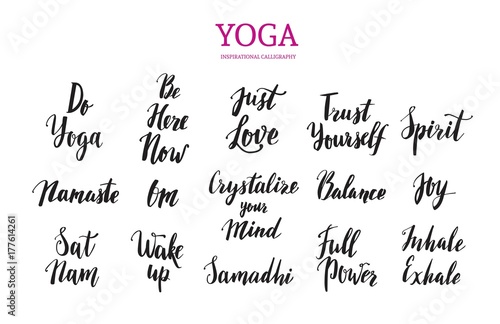 YOGA
INSPIRATIONAL CALLIGRAPHY
Do
Yoga
Be
Here
Now
Just
Love
Trust
Yourself
Spirit
Namaste
Om
Crystalize
your
Mind
Balance
Joy
Sat
Nam
Wake
up
Samadhi
Full
Power
Inhale
Exhale
Adobe Stock | #177614261